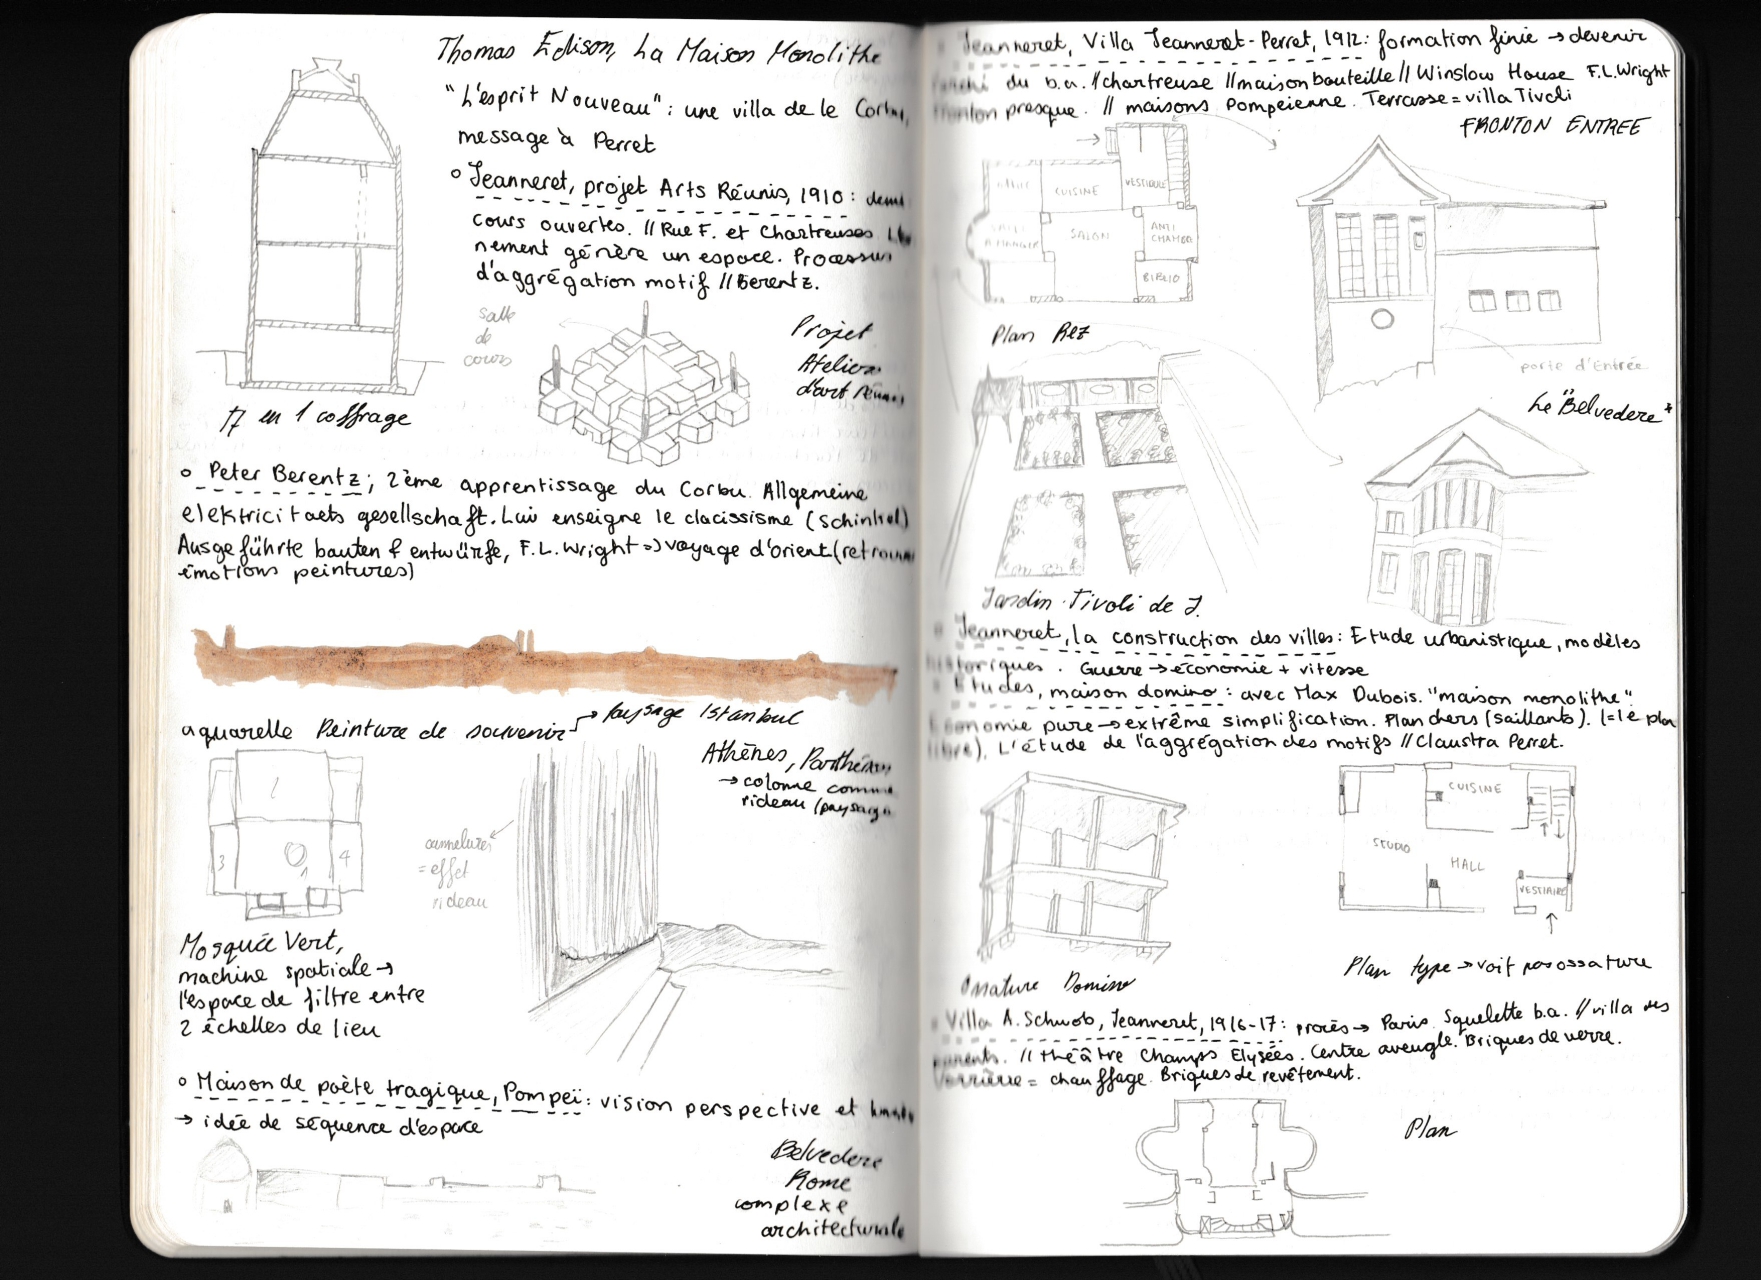 Thomas Edison, La Maison Monolithe
"L'esprit Nouveau" : une villa de le Corbu,
message à Perret
Jeanneret, projet Arts Réunis, 1910 :
cours ouvertes. // Rue F. et Chartreuses
nement génère un espace. Processus
d'aggrégation motif // Berentz.
salle
de
cours
Projet
Ateliers
d'art réunis
en 1 coffrage
Peter Berentz ; 2ème apprentissage du Corbu. Allgemeine
elektricitaets gesellschaft. Lui enseigne le clacissisme (Schinkel)
Ausgeführte bauten & entwürfe, F.L.Wright => voyage d'orient (retrouver
émotions peintures)
aquarelle Peinture de souvenir → Paysage Istanbul
Athènes, Parthénon
→ colonne comme
rideau (paysage
cannelures
= effet
rideau
2
3
1
4
Mosquée Vert,
machine spatiale →
l'espace de filtre entre
2 échelles de lieu
Maison de poète tragique, Pompeï : vision perspective et
→ idée de séquence d'espace
Belvedere
Rome
complexe
architecturale
Jeanneret, Villa Jeanneret-Perret, 1912 : formation finie → devenir
du b.a. // chartreuse // maison bouteille // Winslow House F.L.Wright
fronton presque. // maisons Pompeienne. Terrasse = villa Tivoli
FRONTON ENTREE
OFFICE
CUISINE
VESTIBULE
SALLE
A MANGER
SALON
ANTI
CHAMBRE
BIBLIO
Plan Rez
porte d'Entrée
Le "Belvedere"
Jardin Tivoli de J.
Jeanneret, la construction des villes : Etude urbanistique, modèles
historiques. Guerre → économie + vitesse
Etudes, maison domino : avec Max Dubois. "maison monolithe".
Economie pure → extrême simplification. Planchers (saillants). (= le plan
libre). L'étude de l'aggrégation des motifs // Claustra Perret.
CUISINE
STUDIO
HALL
VESTIAIRE
Ossature Domino
Plan type → voit pas ossature
Villa A. Schwob, Jeanneret, 1916-17 : procès → Paris. Squelette b.a. // villa des
parents. // théâtre Champs Elysées. Centre aveugle. Briques de verre.
Verrière = chauffage. Briques de revêtement.
Plan